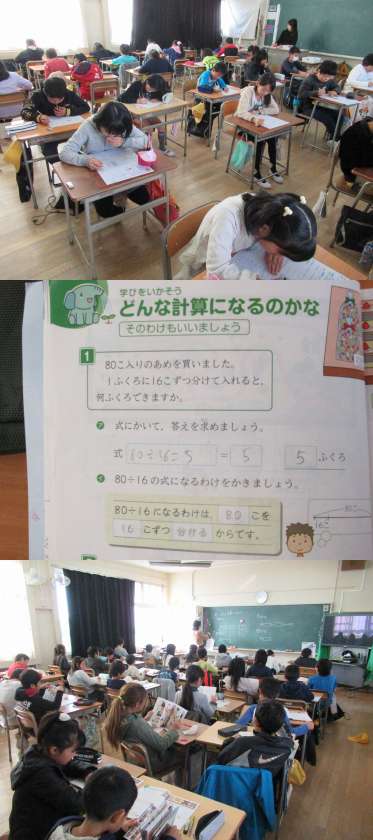 学びをいかそう
どんな計算になるのかな
そのわけもいいましょう
1
80こ入りのあめを買いました。
1ふくろに16こずつ分けて入れると、
何ふくろできますか。
ア 式にかいて、答えを求めましょう。
式 80÷16=5 = 5 5 ふくろ
イ 80÷16の式になるわけをかきましょう。
80÷16になるわけは、80こを
16こずつ分けるからです。
80こ
16こ